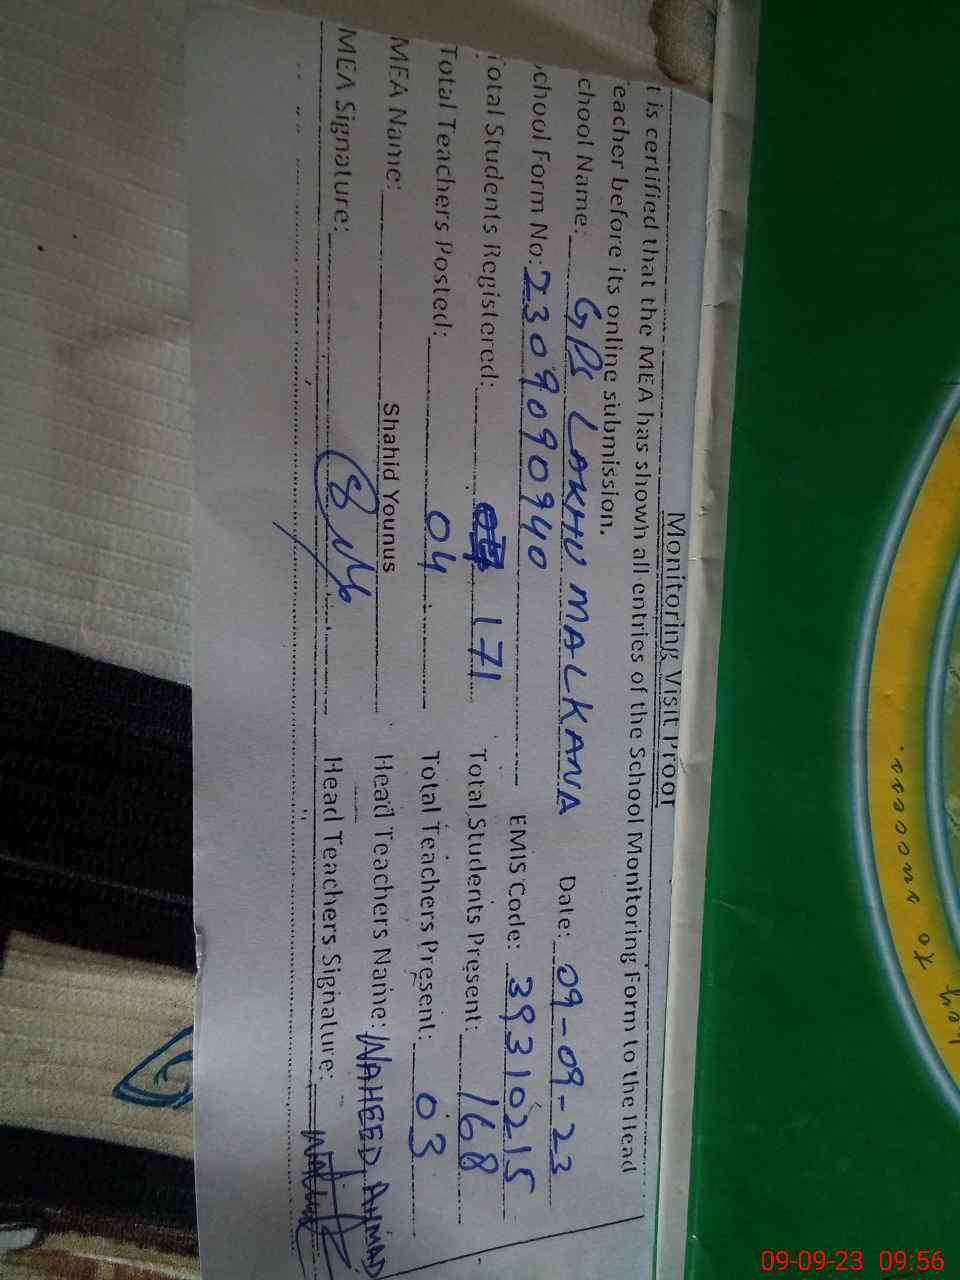 Monitoring Visit Proof
t is certified that the MEA has shown all entries of the School Monitoring Form to the Head
eacher before its online submission.
chool Name: GPS LAKHU MALKANA Date: 09-09-23
chool Form No: 2309090940 EMIS Code: 39310215
Total Students Registered: 171 Total Students Present: 168
Total Teachers Posted: 04 Total Teachers Present: 03
MEA Name: Shahid Younus Head Teachers Name: WAHEED AHMAD
MEA Signature: Head Teachers Signature:
key to success.
09-09-23 09:56